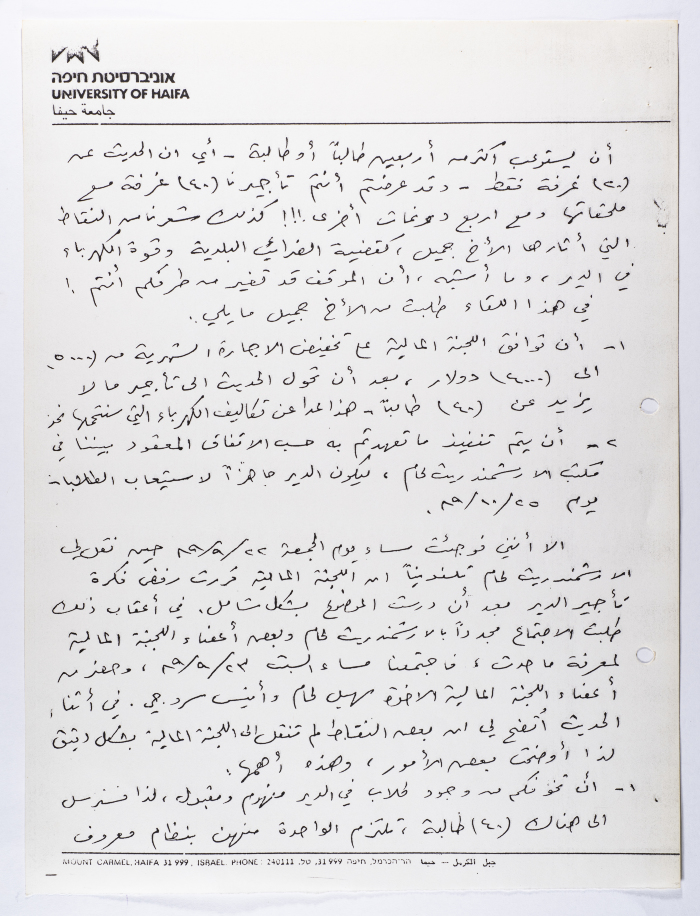 אוניברסיטת חיפה
UNIVERSITY OF HAIFA
جامعة حيفا
أن يستوعب أكثر من أربعين طالباً أو طالبة - أي ان الحديث عن
(٢٠) غرفة فقط - وقد عرضتم أنتم تأجيرنا (٤٠) غرفة مع
ملحقاتها ومع اربع دونمات أخرى !!! كذلك شعرنا من النقاط
التي أثارها الأخ جميل، كقضية الضرائب البلدية وقوة الكهرباء
في الدير، وما أشبه، أن الموقف قد تغير من طرفكم أنتم !
في هذا اللقاء طلبت من الأخ جميل ما يلي:
١- أن توافق اللجنة المالية على تخفيض الاجارة الشهرية من (٥٠٠٠)
الى (٤٠٠٠) دولار، بعد أن تحول الحديث الى تأجير ما لا
يزيد عن (٤٠) طالباً - هذا عدا عن تكاليف الكهرباء التي سنتحملها نحن
٢- أن يتم تنفيذ ما تعهدتم به حسب الاتفاق المعقود بيننا في
مكتب الارشمندريت لحام، ليكون الدير جاهزاً لاستيعاب الطالبات
يوم ٨٩/١٠/٢٥.
الا أنني فوجئت مساء يوم الجمعة ٨٩/٩/٢٢ حين نقل لي
الارشمندريت لحام تلفونياً ان اللجنة المالية قررت رفض فكرة
تأجير الدير بعد أن درست الموضوع بشكل شامل. في أعقاب ذلك
طلبت الاجتماع مجدداً بالارشمندريت لحام وبعض أعضاء اللجنة المالية
لمعرفة ما حدث، فاجتمعنا مساء السبت ٨٩/٩/٢٣، وحضر من
أعضاء اللجنة المالية الاخوة سهيل لحام وأنيس سروجي. في أثناء
الحديث اتضح لي ان بعض النقاط لم تنقل الى اللجنة المالية بشكل دقيق
لذا أوضحت بعض الأمور، وهذه أهمها:
١- ان تخوفكم من وجود طلاب في الدير مفهوم ومقبول، لذا سنرسل
الى هناك (٤٠) طالبة، تلتزم الواحدة منهن بنظام معروف
MOUNT CARMEL, HAIFA 31 999, ISRAEL. PHONE: 240111 הר הכרמל, חיפה 31 999, טל. جبل الكرمل - حيفا